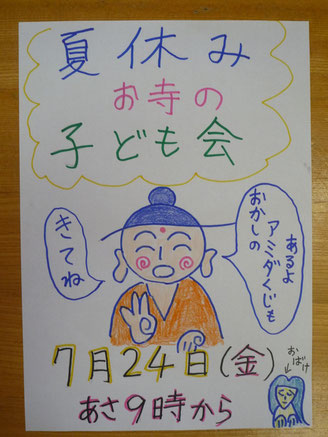 夏休み
お寺の
子ども会
おかしの
アミダくじも
あるよ
きてね
7月24日(金)
おばけ
あさ9時から